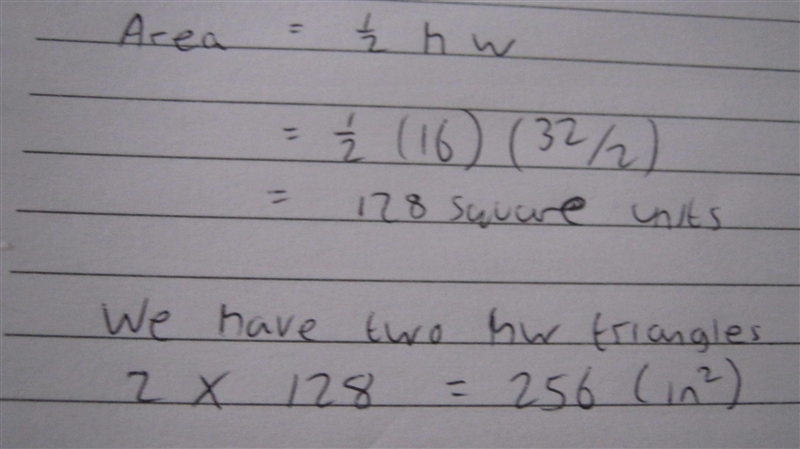 Area = ½ h w
= ½ (16) (32/2)
= 128 square units
We have two hw triangles
2 x 128 = 256 (in²)